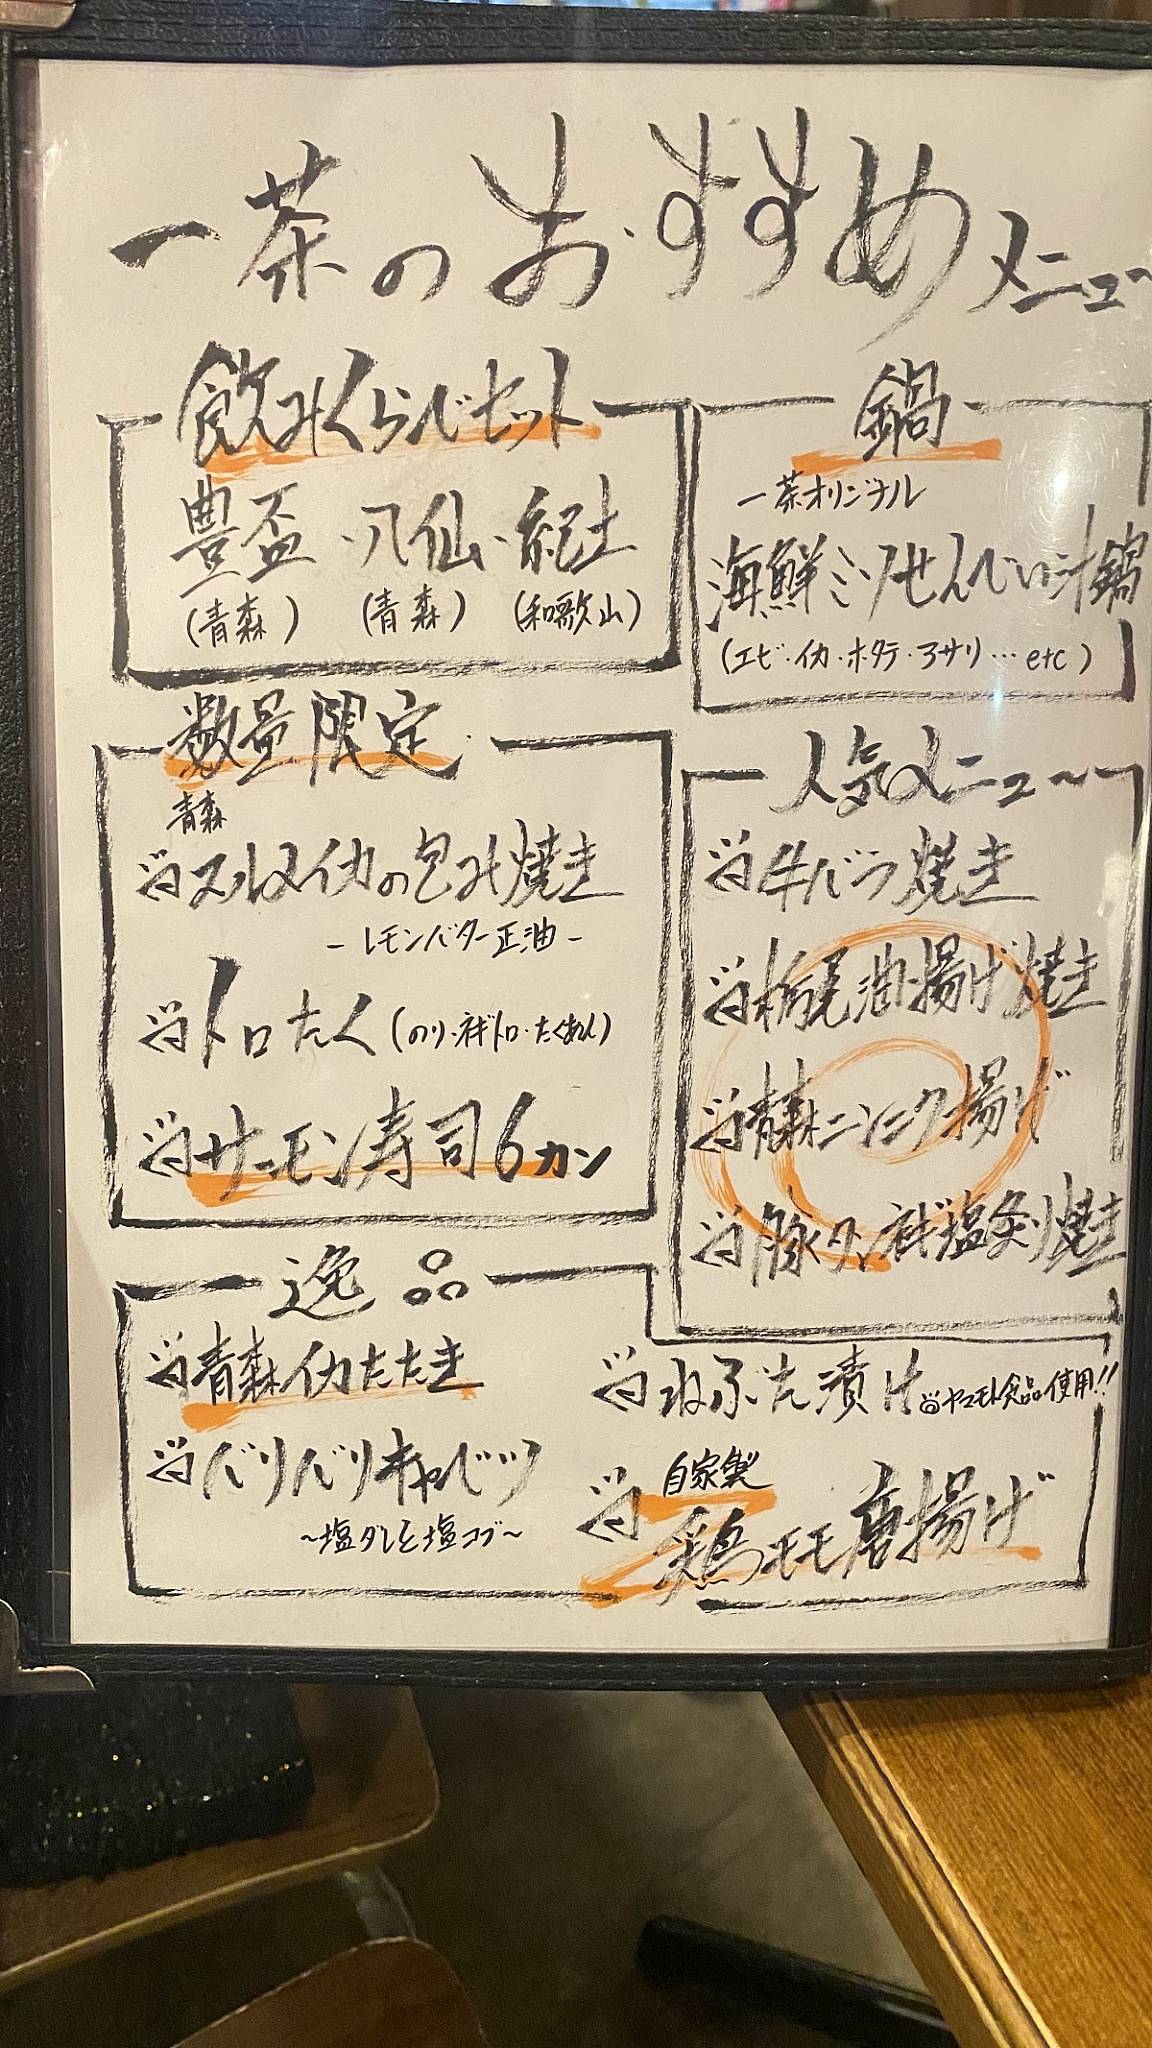 一茶のおすすめメニュー
飲みくらべセット
豊盃・八仙・紀土
(青森) (青森) (和歌山)
鍋
一茶オリジナル
海鮮ミソせんべい汁鍋
(エビ・イカ・ホタテ・アサリ…etc)
数量限定
青森
スルメイカの包み焼き
-レモンバター正油-
トロたく(のり・ネギトロ・たくあん)
サーモン寿司6カン
人気メニュー
牛バラ焼き
栃尾油揚げ焼き
青森ニンニク揚げ
豚タンネギ塩炙り焼き
逸品
青森イカたたき
バリバリキャベツ
～塩ダレと塩コブ～
ねぶた漬け ヤマモト食品使用!!
自家製
鶏モモ唐揚げ